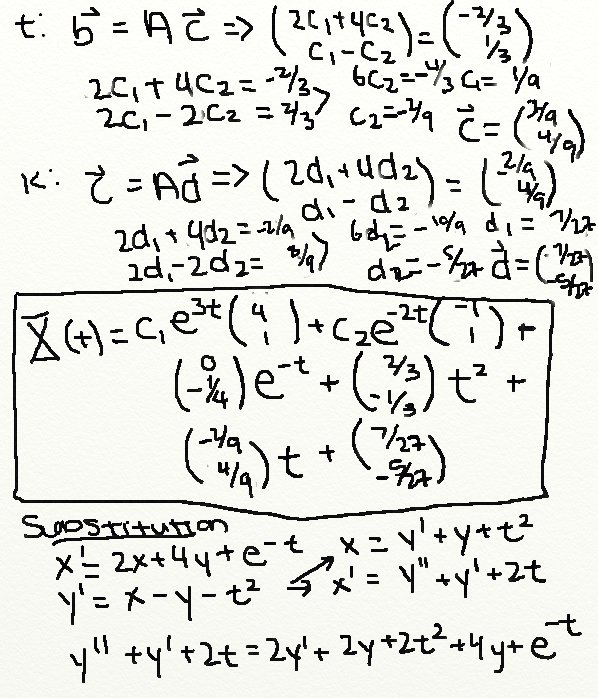 t: b⃗ = A c⃗ => (2c₁+4c₂ / c₁-c₂) = (-2/3 / 1/3)
2c₁ + 4c₂ = -2/3 > 6c₂ = -4/3 c₁ = 1/9
2c₁ - 2c₂ = 2/3 > c₂ = -2/9 c⃗ = ( / 4/9)
k: c⃗ = A d⃗ => (2d₁+4d₂ / d₁-d₂) = (-2/9 / 4/9)
2d₁ + 4d₂ = -2/9 > 6d₂ = -10/9 d₁ = 7/27
2d₁ - 2d₂ = 8/9 > d₂ = -5/27 d⃗ = (7/27 / -5/27)
X⃗(t) = c₁e^{3t}(4 / 1) + c₂e^{-2t}(-1 / 1) +
(0 / -1/4) e^{-t} + (2/3 / -1/3) t² +
(-2/9 / 4/9) t + (7/27 / -5/27)
Substitution
x' = 2x + 4y + e^{-t} x = y' + y + t²
y' = x - y - t² => x' = y'' + y' + 2t
y'' + y' + 2t = 2y' + 2y + 2t² + 4y + e^{-t}